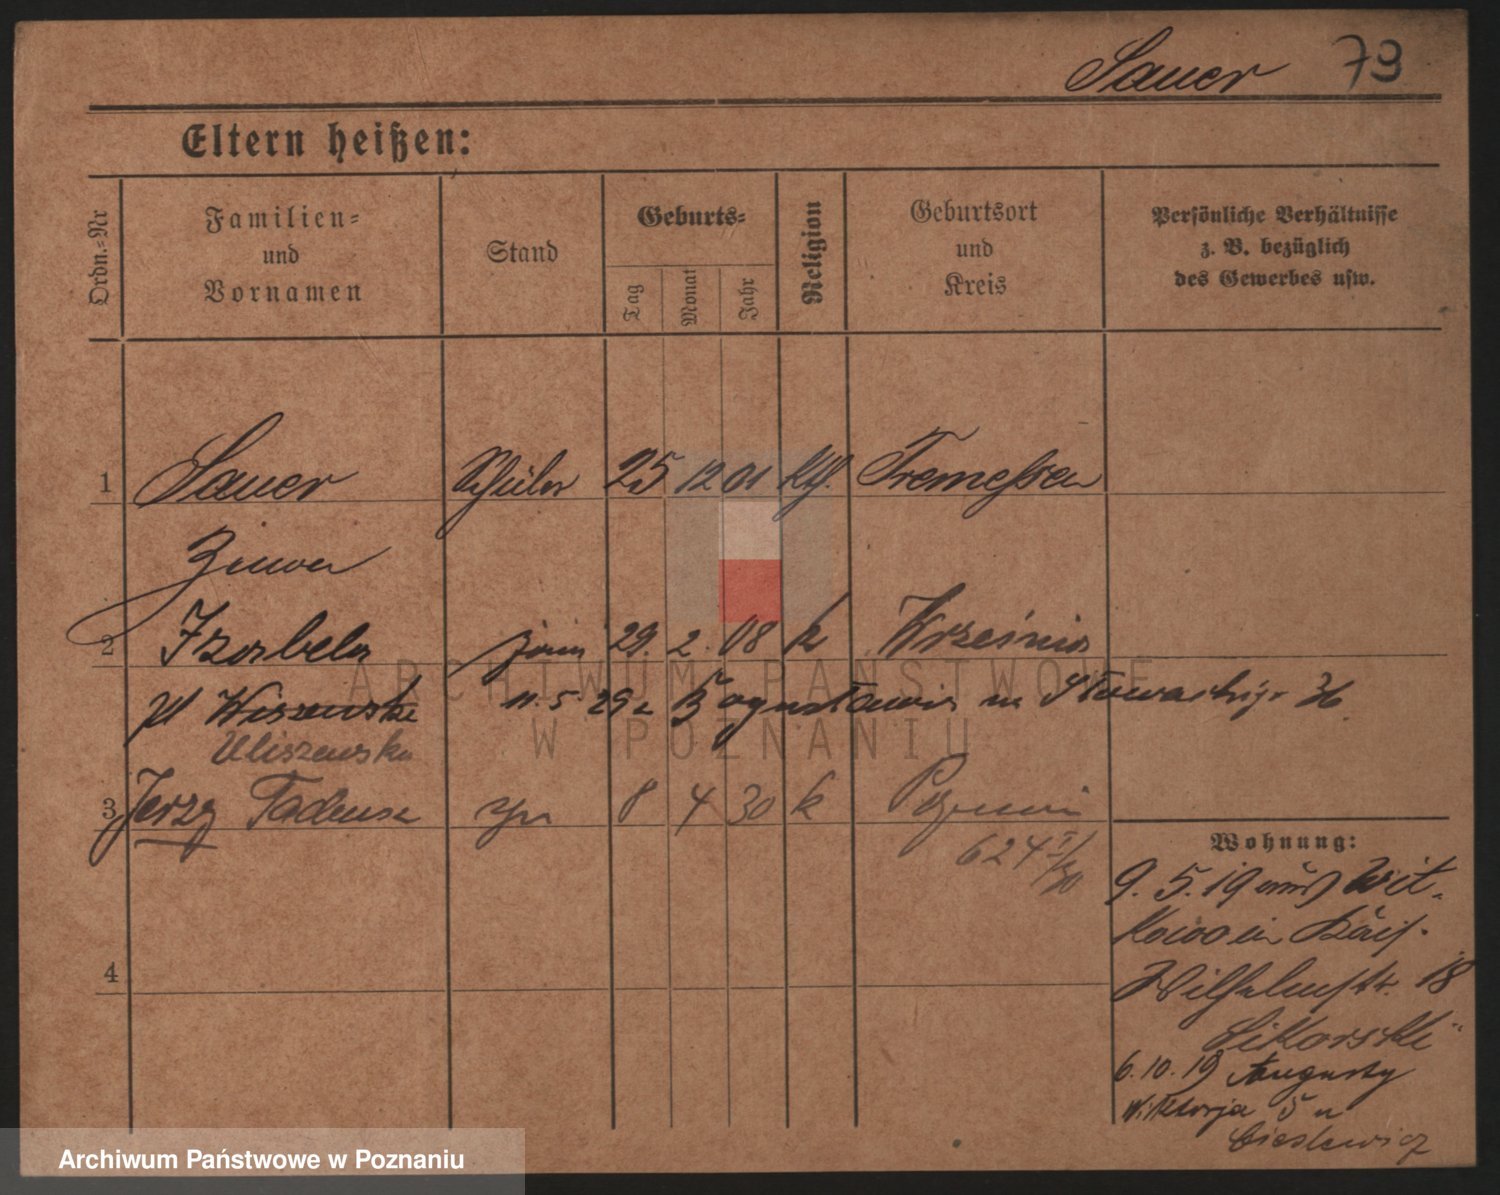 Sauer 79
Eltern heißen:
Ordn.=Nr
Familien=
und
Vornamen
Stand
Geburts=
Tag
Monat
Jahr
Religion
Geburtsort
und
Kreis
Persönliche Verhältnisse
z. B. bezüglich
des Gewerbes usw.
1 Sauer Schüler 25 12 01 kth. Tremessen
2 Izabela żona 29. 2. 08 k Września
Wiszewska 11. 5. 29 z
Uliszewska
3 Jerzy Tadeusz syn 8 4 30 k Poznań
624
Wohnung:
9. 5. 19 aus Wit-
kowo in
Wilhelmstr. 18
Sikorski
6. 10. 19 Augusty
Wiktorja 5 u
Cieslewicz
4
ARCHIWUM PAŃSTWOWE
W POZNANIU
Archiwum Państwowe w Poznaniu